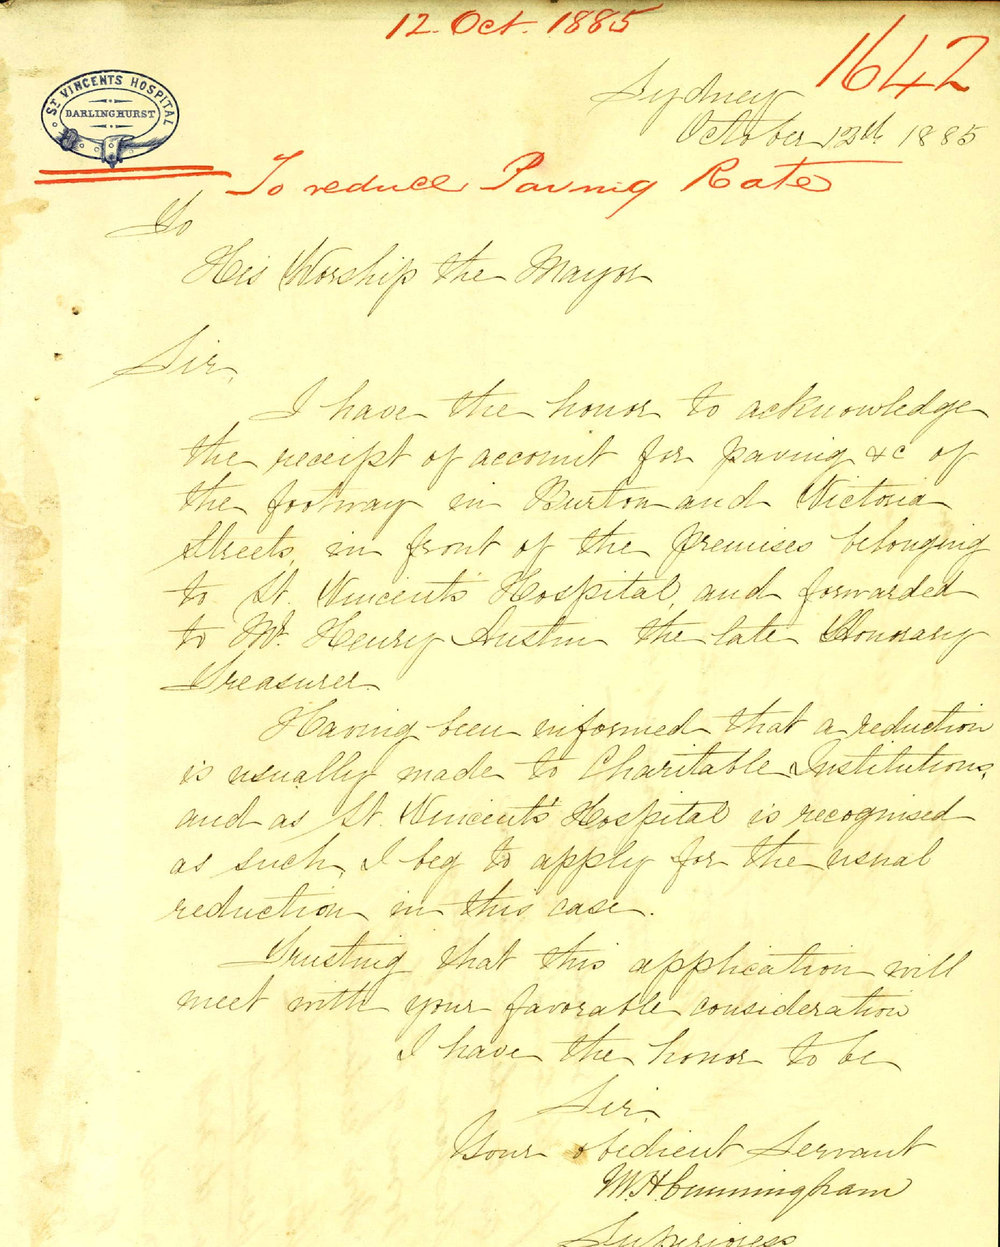 12. Oct. 1885
1642
ST VINCENTS HOSPITAL
DARLINGHURST
Sydney
October 12th 1885
To reduce Paving Rate
To
His Worship the Mayor
Sir,
I have the honor to acknowledge
the receipt of account for paving &c of
the footway in Burton and Victoria
Streets, in front of the premises belonging
to St. Vincent's Hospital, and forwarded
to Mr. Henry Austin the late Honorary
Treasurer.
Having been informed that a reduction
is usually made to Charitable Institutions,
and as St. Vincent's Hospital is recognised
as such, I beg to apply for the usual
reduction in this case.
Trusting that this application will
meet with your favorable consideration
I have the honor to be
Sir,
Your obedient Servant
M H Cunningham
Superioress